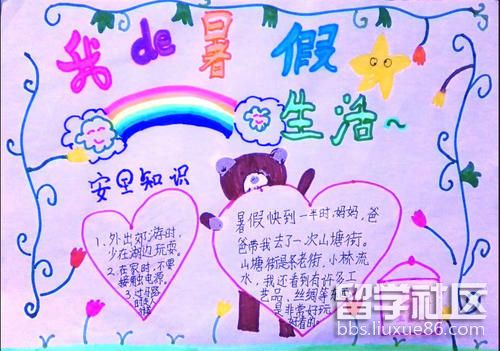 我de暑假
生活~
安里知识
1.外出郊游时,
少在湖边玩耍。
2.在家时,不要
接触电源。
3.过马路
暑假快到一半时,妈妈,爸
爸带我去了一次山塘街。
山塘街是条老街,小林流
水,我还看到有许多工
艺品、丝绸等
是非常好玩
留学社区
bbs.liuxue86.com